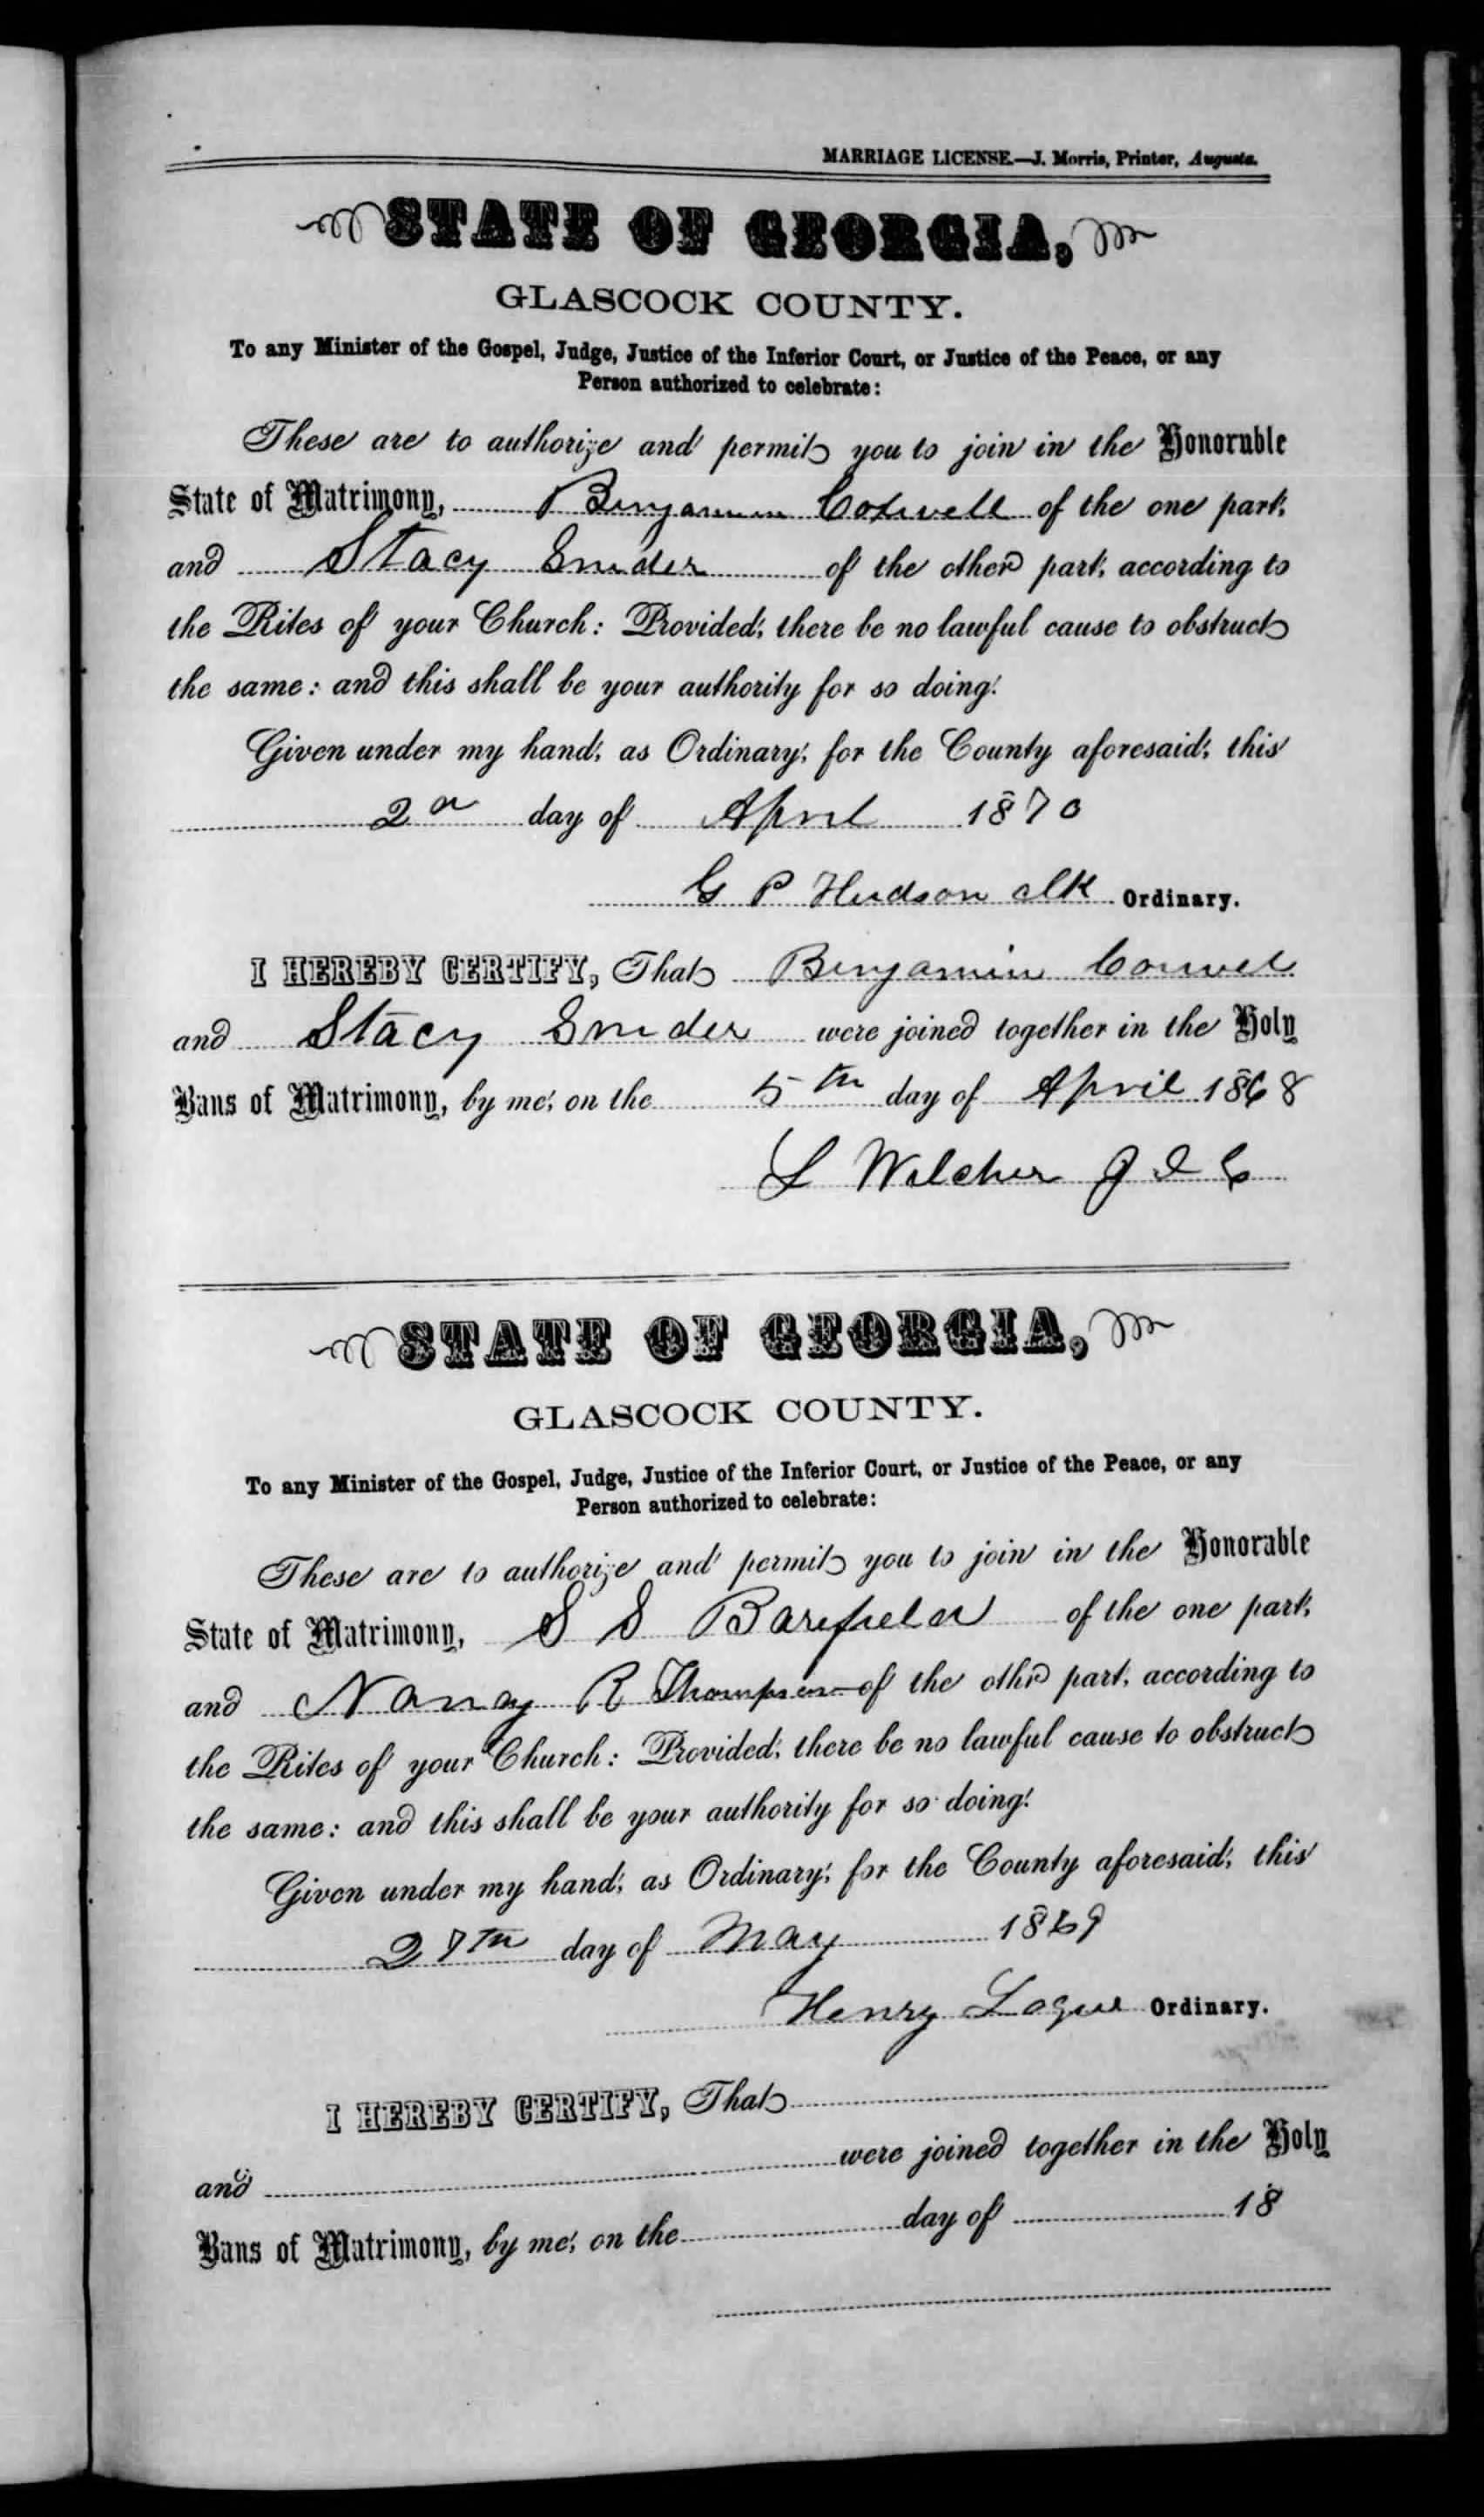 MARRIAGE LICENSE.—J. Morris, Printer, Augusta.
STATE OF GEORGIA,
GLASCOCK COUNTY.
To any Minister of the Gospel, Judge, Justice of the Inferior Court, or Justice of the Peace, or any
Person authorized to celebrate:
These are to authorize and permit you to join in the Honorable
State of Matrimony, Benjamin Coxwell of the one part,
and Stacy Snider of the other part, according to
the Rites of your Church: Provided, there be no lawful cause to obstruct
the same: and this shall be your authority for so doing.
Given under my hand, as Ordinary, for the County aforesaid, this
2d day of April 1870
G P Hudson clk Ordinary.
I HEREBY CERTIFY, That Benjamin
and Stacy Snider were joined together in the Holy
Bans of Matrimony, by me, on the 5th day of April 1868
L Wilcher J I C
STATE OF GEORGIA,
GLASCOCK COUNTY.
To any Minister of the Gospel, Judge, Justice of the Inferior Court, or Justice of the Peace, or any
Person authorized to celebrate:
These are to authorize and permit you to join in the Honorable
State of Matrimony, S S Barefield of the one part,
and Nancy R Thompson of the other part, according to
the Rites of your Church: Provided, there be no lawful cause to obstruct
the same: and this shall be your authority for so doing.
Given under my hand, as Ordinary, for the County aforesaid, this
27th day of May 1869
Henry Logue Ordinary.
I HEREBY CERTIFY, That
and were joined together in the Holy
Bans of Matrimony, by me, on the day of 18